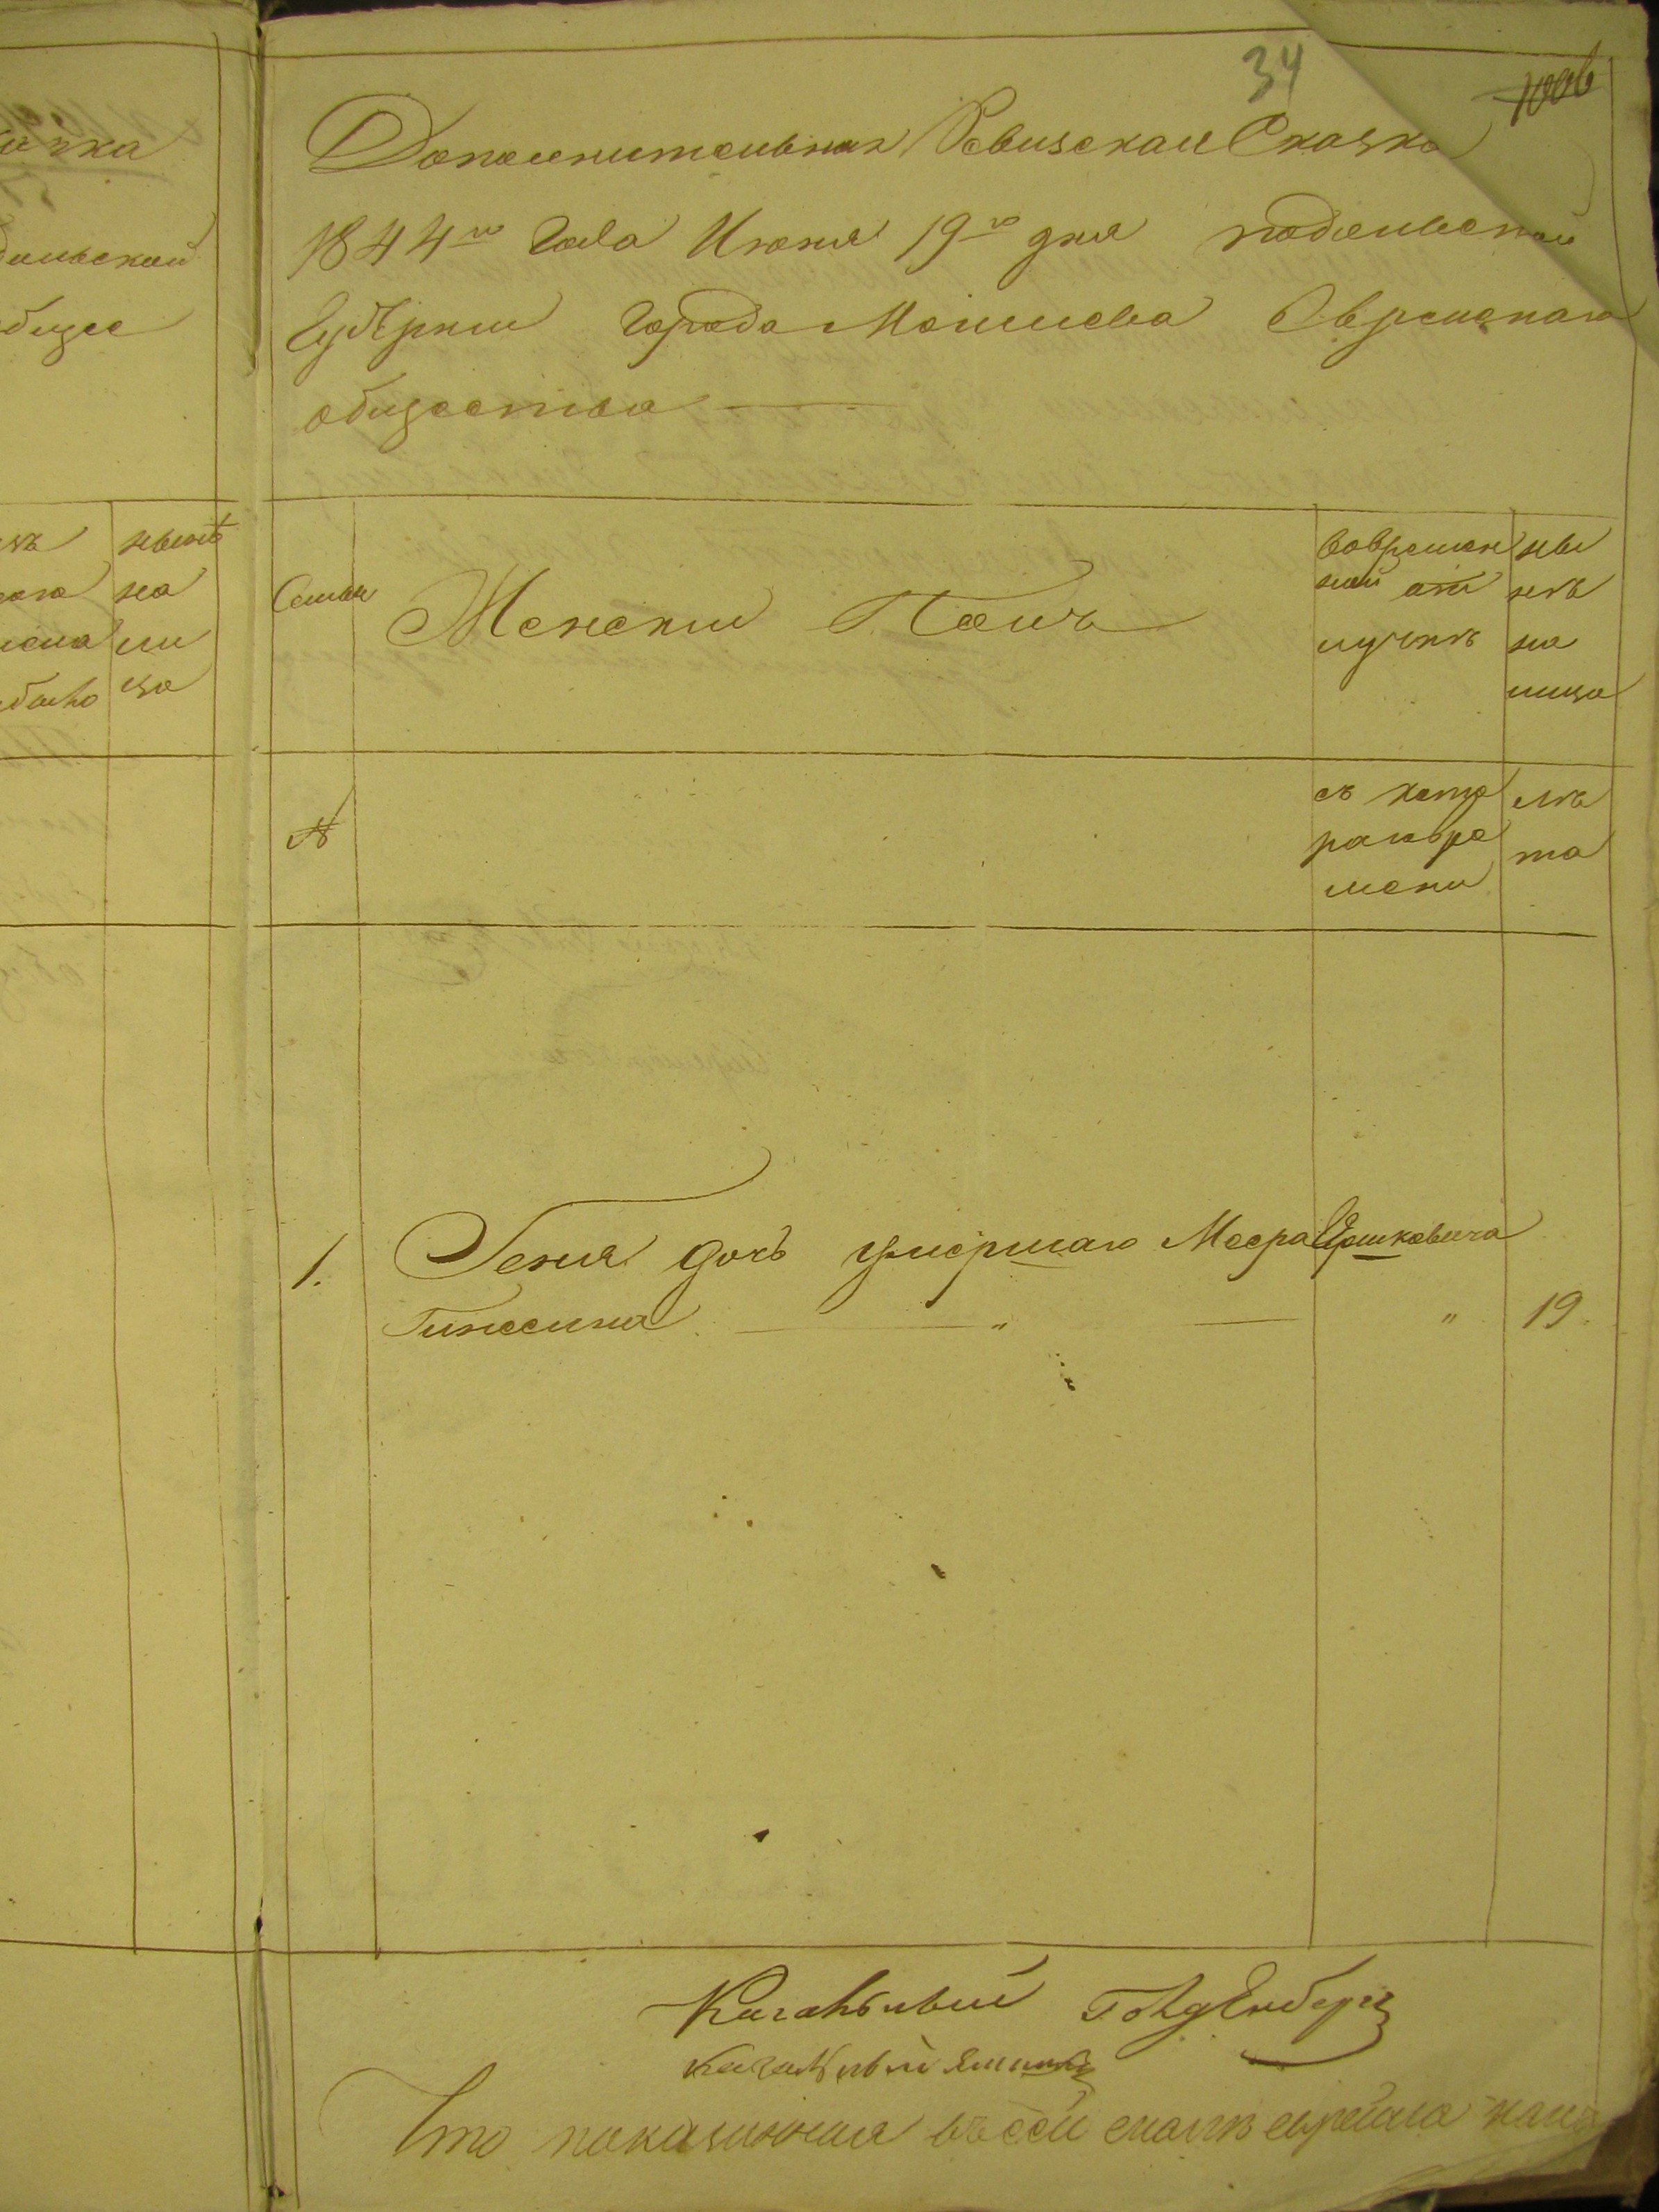 ачка
дольской
обще
34
Дополнительная Ревизская Сказка
1844го года Июня 19го дня подольской
Губернии города Могилева Еврейскаго
общества
нынѣ
на
ли
цо
Семьи
Женский Полъ
вовремен
ной отъ
лучкѣ
ны
нѣ
на
лицо
№
съ кото
раговре
мени
лѣ
та
1. Геня дочь умершаго Меера Ершковича
Гинесина " " 19.
Кагальный Голденберг
Кагальный
Что показанная въ сей сказкѣ еврейка